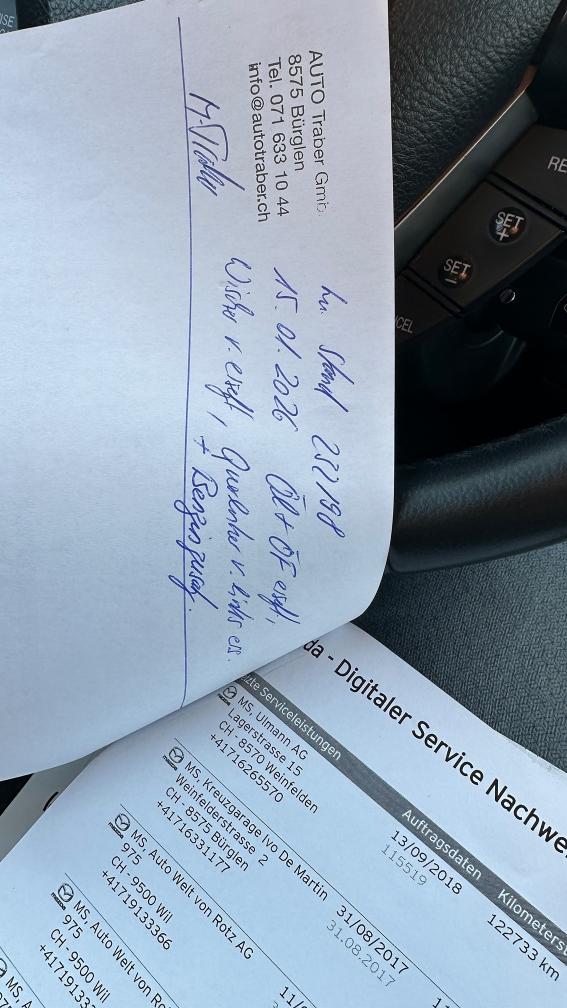 AUTO Traber GmbH
8575 Bürglen
Tel. 071 633 10 44
info@autotraber.ch
km Stand 252198
15.01.2026 Öl + ÖF ers.,
Wischer v. ers., Querlenker v. links ers.
+ Benzinzusatz.
RE
SET
+
SET
-
CEL
da - Digitaler Service Nachwe
zte Serviceleistungen
Auftragsdaten
Kilometerst
MS, Ulmann AG
Lagerstrasse 15
CH - 8570 Weinfelden
+41716265570
13/09/2018
115519
122733 km
MS, Kreuzgarage Ivo De Martin
Weinfelderstrasse 2
CH - 8575 Bürglen
+41716331177
31/08/2017
31.08.2017
MS, Auto Welt von Rotz AG
975
CH - 9500 Wil
+41719133366
MS, Auto Welt von Ro
975
CH - 9500 Wil
MS, A